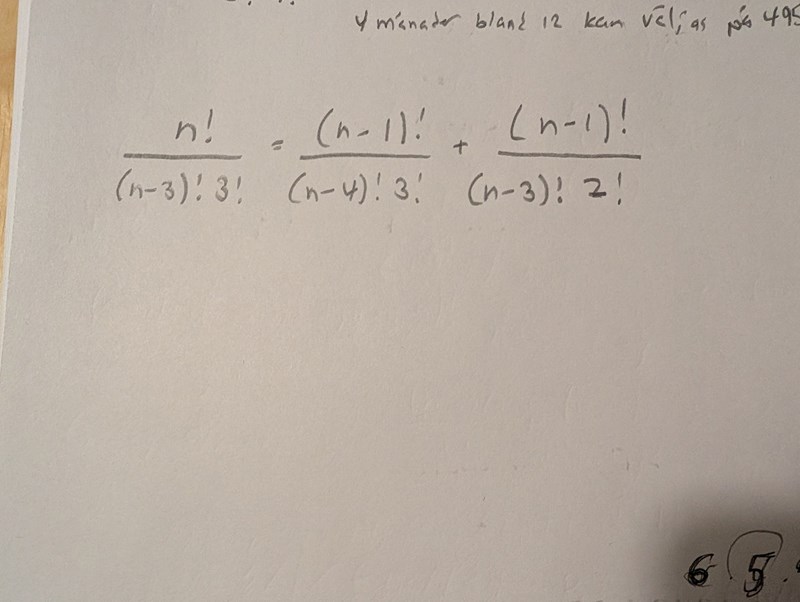 4 månader bland 12 kan väljas på 495
n!/((n-3)! 3!) = (n-1)!/((n-4)! 3!) + (n-1)!/((n-3)! 2!)
6 5